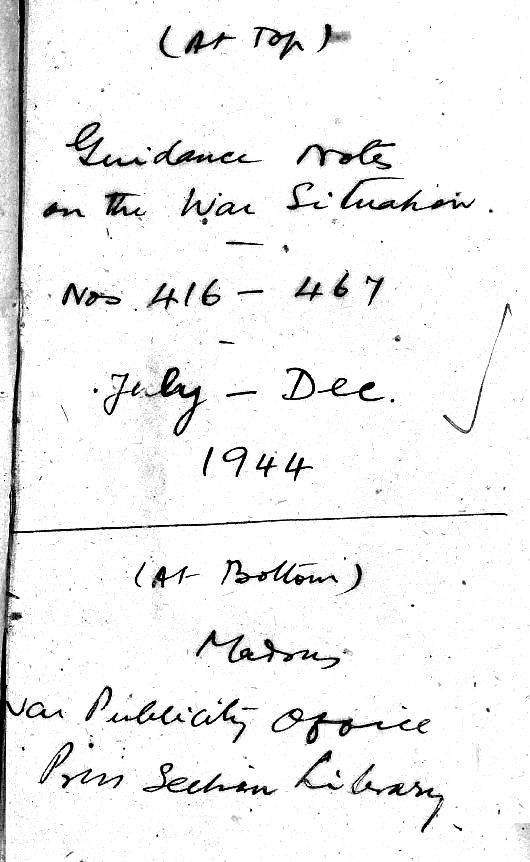 (At Top)
Guidance Notes
on the War Situation.
Nos 416 – 467
July – Dec.
1944
(At Bottom)
Madras
War Publicity Office
Press Section Library